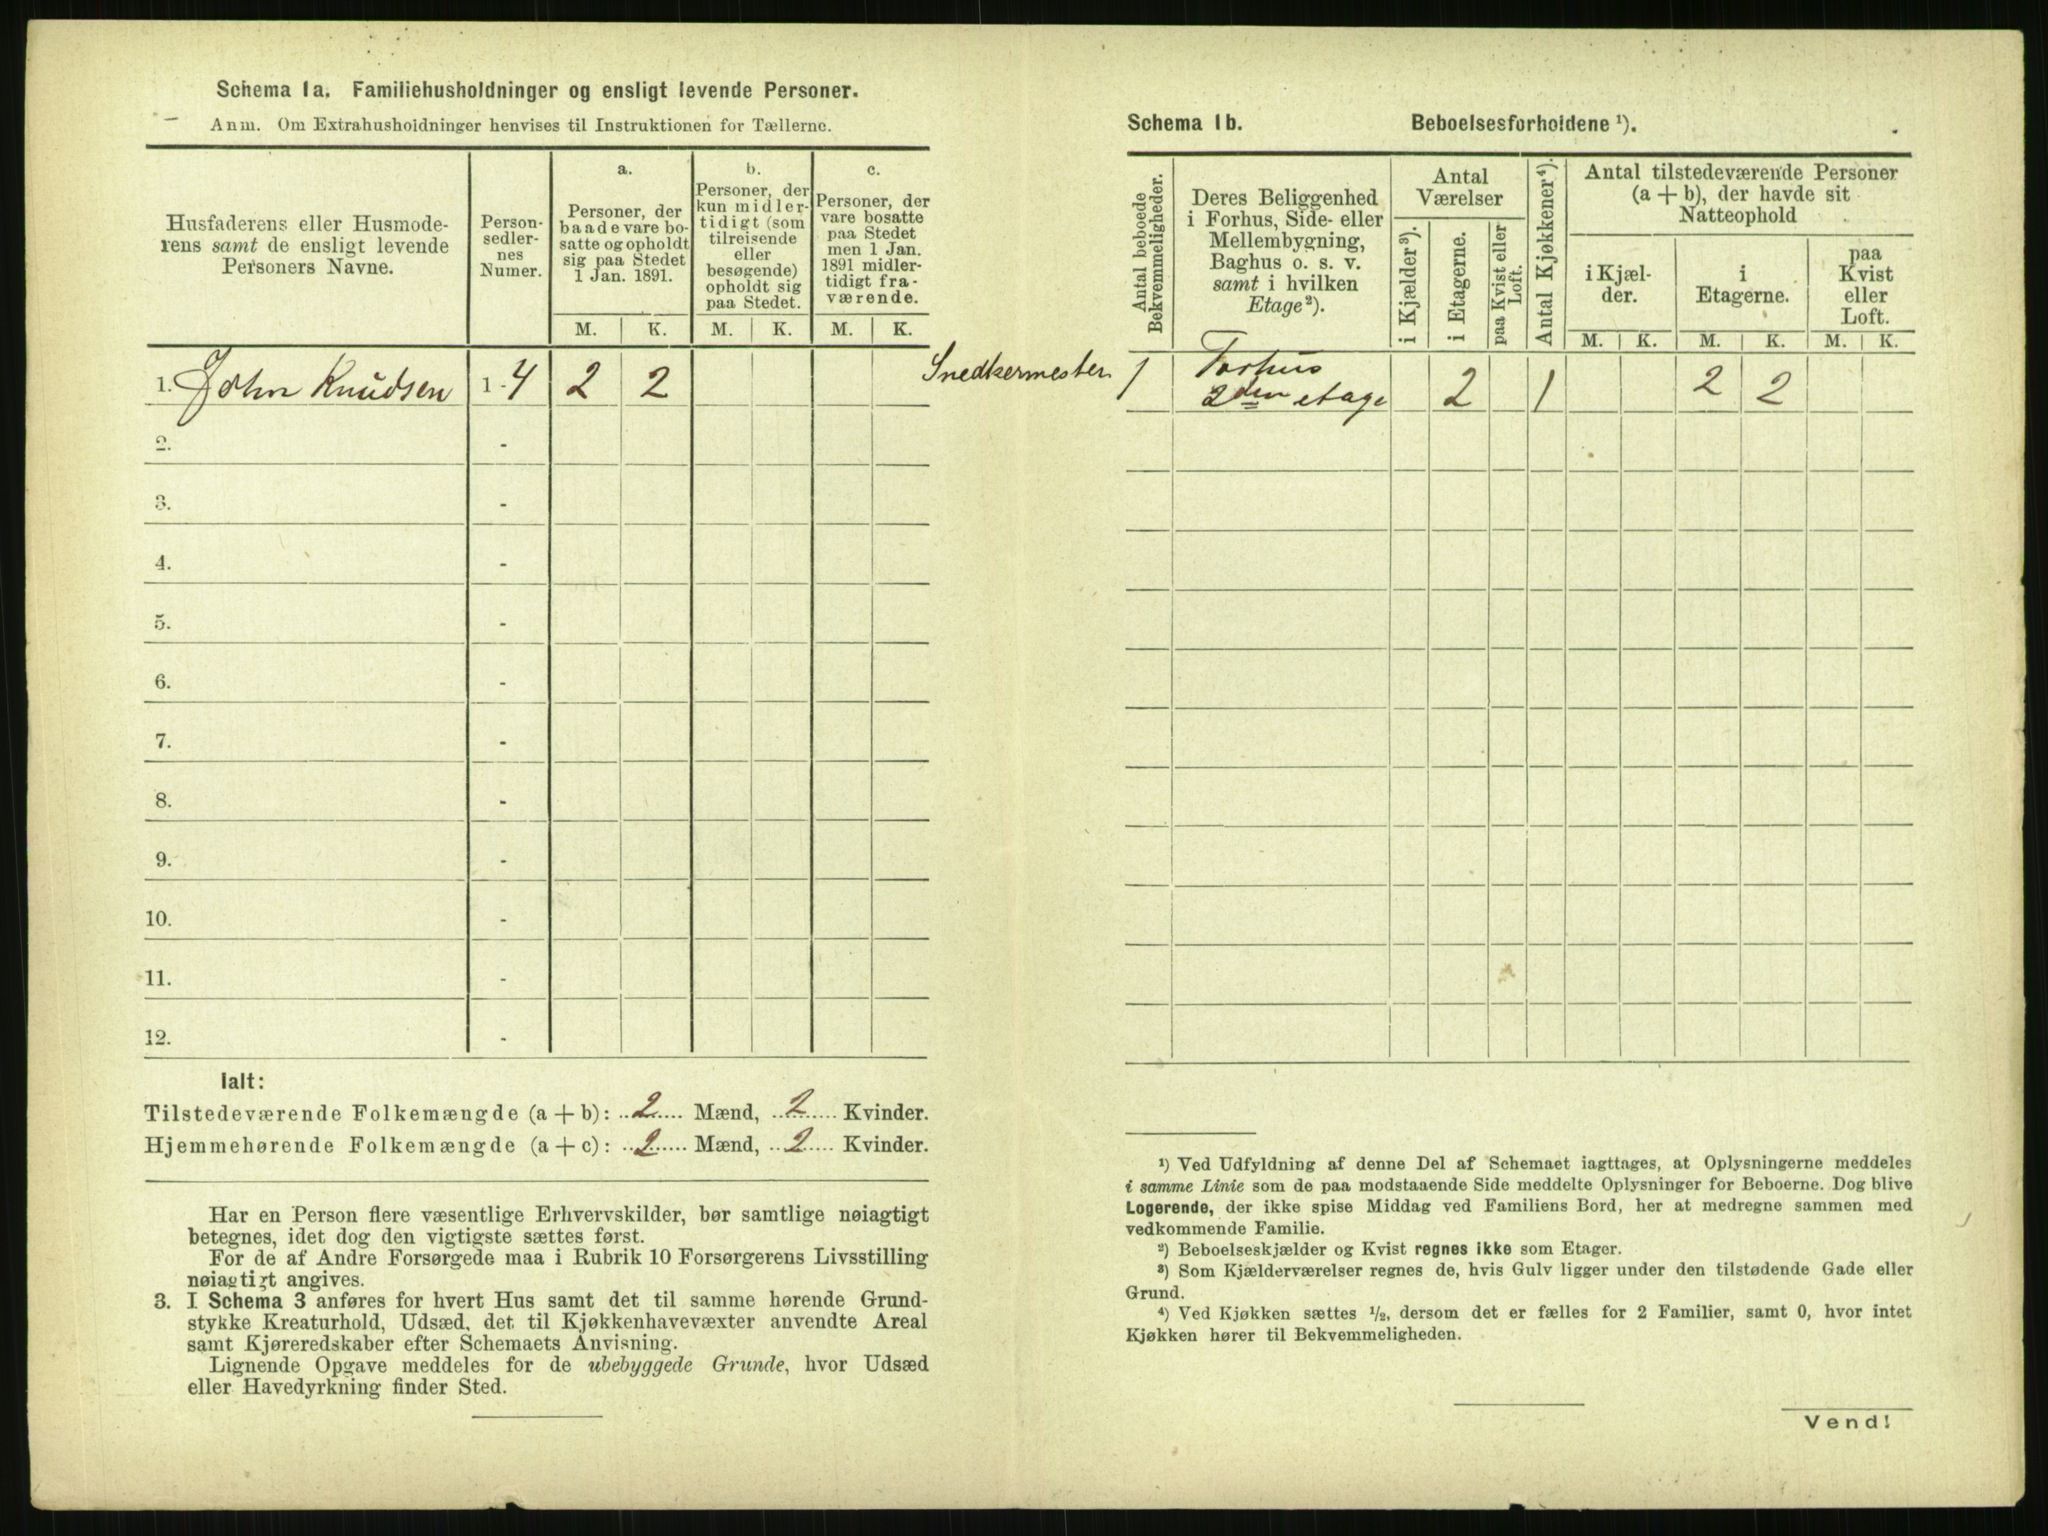 Schema 1a. Familiehusholdninger og ensligt levende Personer.
Anm. Om Extrahusholdninger henvises til Instruktionen for Tællerne.
Husfaderens eller Husmode-
rens samt de ensligt levende
Personers Navne.
Person-
sedler-
nes
Numer.
a.
Personer, der
baade vare bo-
satte og opholdt
sig paa Stedet
1 Jan. 1891.
b.
Personer, der
kun midler-
tidigt (som
tilreisende
eller
besøgende)
opholdt sig
paa Stedet.
c.
Personer, der
vare bosatte
paa Stedet
men 1 Jan.
1891 midler-
tidigt fra-
værende.
M. K. M. K. M. K.
1. John Knudsen 1-4 2 2
2. -
3. -
4. -
5. -
6. -
7. -
8. -
9. -
10. -
11. -
12. -
Ialt:
Tilstedeværende Folkemængde (a + b): 2 Mænd, 2 Kvinder.
Hjemmehørende Folkemængde (a + c): 2 Mænd, 2 Kvinder.
Har en Person flere væsentlige Erhvervskilder, bør samtlige nøiagtigt
betegnes, idet dog den vigtigste sættes først.
For de af Andre Forsørgede maa i Rubrik 10 Forsørgerens Livsstilling
nøiagtigt angives.
3. I Schema 3 anføres for hvert Hus samt det til samme hørende Grund-
stykke Kreaturhold, Udsæd, det til Kjøkkenhavevæxter anvendte Areal
samt Kjøreredskaber efter Schemaets Anvisning.
Lignende Opgave meddeles for de ubebyggede Grunde, hvor Udsæd
eller Havedyrkning finder Sted.
Schema 1b. Beboelsesforholdene ¹).
Antal beboede
Bekvemmeligheder.
Deres Beliggenhed
i Forhus, Side- eller
Mellembygning,
Baghus o. s. v.
samt i hvilken
Etage²).
Antal
Værelser
i Kjælder³).
i Etagerne.
paa Kvist eller
Loft.
Antal Kjøkkener⁴).
Antal tilstedeværende Personer
(a + b), der havde sit
Natteophold
i Kjæl-
der.
i
Etagerne.
paa
Kvist
eller
Loft.
M. K. M. K. M. K.
Snedkermester 1 Forhus
2den etage 2 1 2 2
¹) Ved Udfyldning af denne Del af Schemaet iagttages, at Oplysningerne meddeles
i samme Linie som de paa modstaaende Side meddelte Oplysninger for Beboerne. Dog blive
Logerende, der ikke spise Middag ved Familiens Bord, her at medregne sammen med
vedkommende Familie.
²) Beboelseskjælder og Kvist regnes ikke som Etager.
³) Som Kjælderværelser regnes de, hvis Gulv ligger under den tilstødende Gade eller
Grund.
⁴) Ved Kjøkken sættes ¹/₂, dersom det er fælles for 2 Familier, samt 0, hvor intet
Kjøkken hører til Bekvemmeligheden.
Vend!